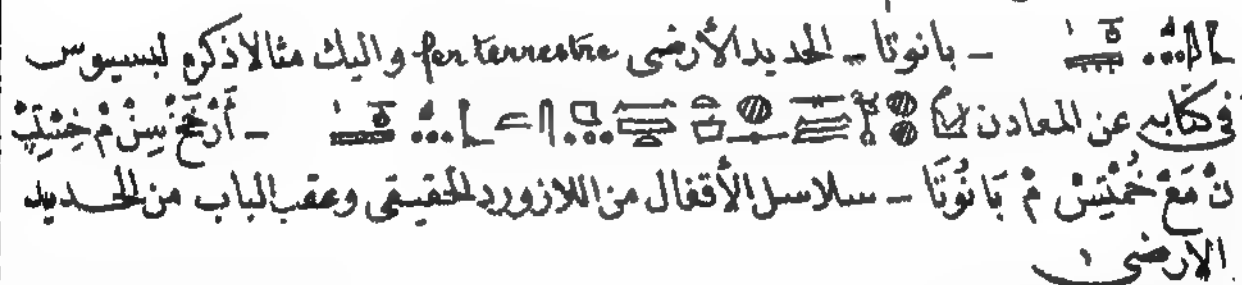 ـ بانوتا ـ الحديد الأرضى fer terrestre واليك مثالا ذكره لبسيوس
فى كتابه عن المعادن ـ أَرْخَخْ سِنْ مْ خِسْتِبْ
نْ مَعْ خُمْتِسْ مْ بَانُوتَا ـ سلاسل الأقفال من اللازورد الحقيقى وعقب الباب من الحديد
الارضى ١